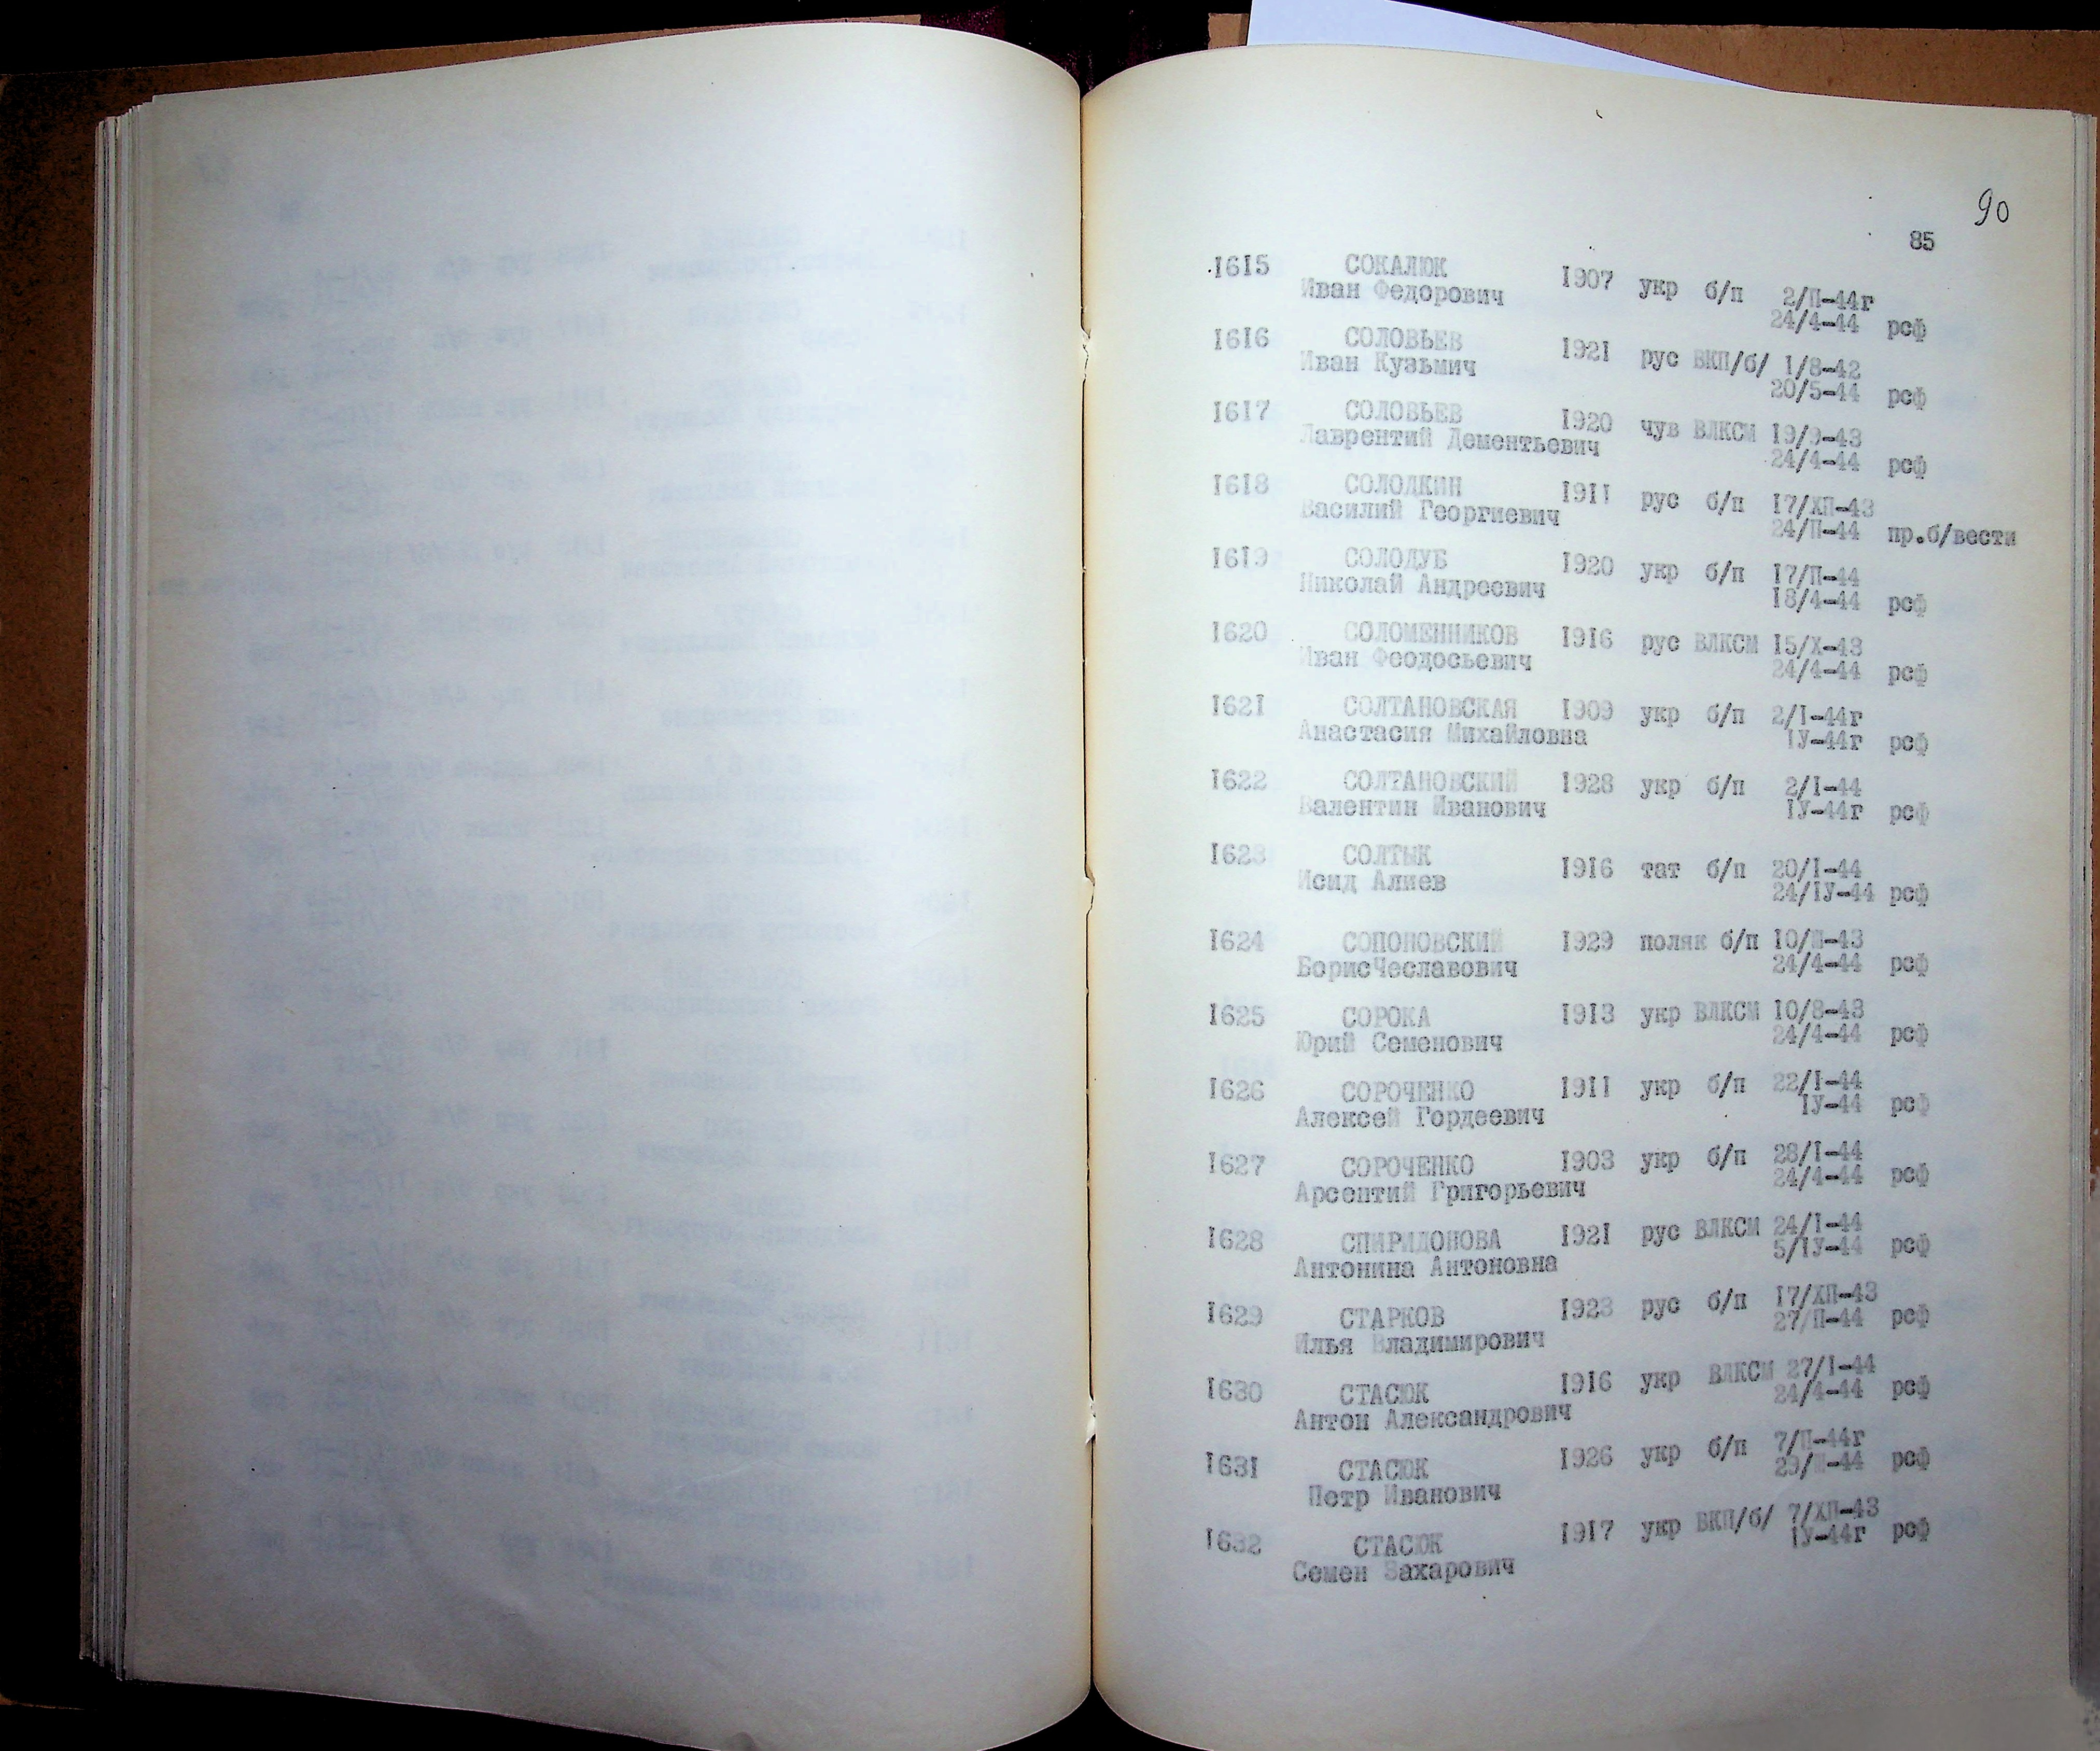 90
85
1615 СОКАЛЮК 1907 укр б/п 2/П-44г
Иван Федорович 24/4-44 рсф
1616 СОЛОВЬЕВ 1921 рус ВКП/б/ 1/8-42
Иван Кузьмич 20/5-44 рсф
1617 СОЛОВЬЕВ 1920 чув ВЛКСМ 19/9-43
Лаврентий Дементьевич 24/4-44 рсф
1618 СОЛОДКИН 1911 рус б/п 17/ХП-43
Василий Георгиевич 24/П-44 пр.б/вести
1619 СОЛОДУБ 1920 укр б/п 17/П-44
Николай Андреевич 18/4-44 рсф
1620 СОЛОМЕННИКОВ 1916 рус ВЛКСМ 15/Х-43
Иван Феодосьевич 24/4-44 рсф
1621 СОЛТАНОВСКАЯ 1909 укр б/п 2/I-44г
Анастасия Михайловна IУ-44г рсф
1622 СОЛТАНОВСКИЙ 1928 укр б/п 2/I-44
Валентин Иванович IУ-44г рсф
1623 СОЛТЫК 1916 тат б/п 20/I-44
Исид Алиев 24/IУ-44 рсф
1624 СОПОНОВСКИЙ 1929 поляк б/п 10/Ш-43
БорисЧеславович 24/4-44 рсф
1625 СОРОКА 1913 укр ВЛКСМ 10/8-43
Юрий Семенович 24/4-44 рсф
1626 СОРОЧЕНКО 1911 укр б/п 22/I-44
Алексей Гордеевич IУ-44 рсф
1627 СОРОЧЕНКО 1903 укр б/п 28/I-44
Арсентий Григорьевич 24/4-44 рсф
1628 СПИРИДОНОВА 1921 рус ВЛКСМ 24/I-44
Антонина Антоновна 5/IУ-44 рсф
1629 СТАРКОВ 1923 рус б/п 17/ХП-43
Илья Владимирович 27/П-44 рсф
1630 СТАСЮК 1916 укр ВЛКСМ 27/I-44
Антон Александрович 24/4-44 рсф
1631 СТАСЮК 1926 укр б/п 7/П-44г
Петр Иванович 29/Ш-44 рсф
1632 СТАСЮК 1917 укр ВКП/б/ 7/ХП-43
Семен Захарович IУ-44г рсф